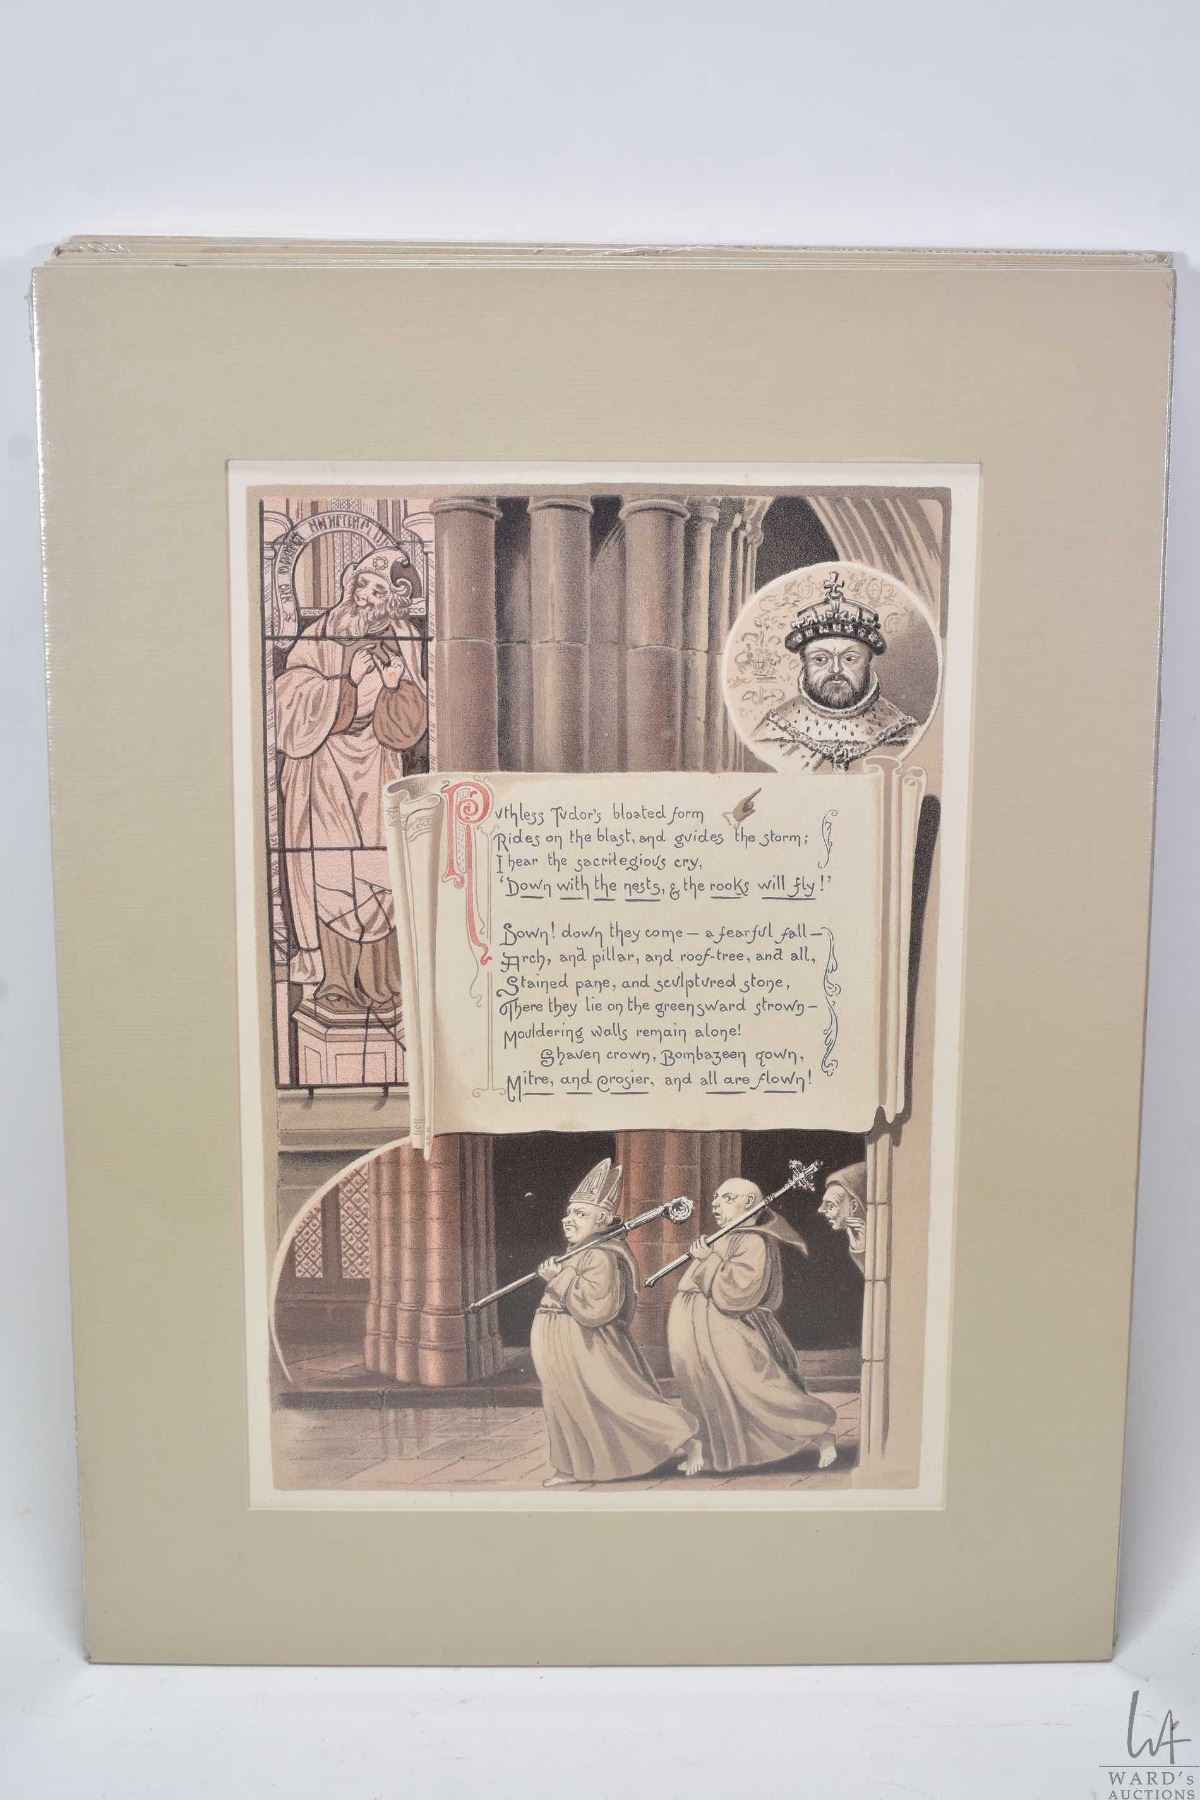 Ruthless Tudor's bloated form
Rides on the blast, and guides the storm;
I hear the sacrilegious cry,
'Down with the nests, & the rooks will fly!'
Down! down they come — a fearful fall —
Arch, and pillar, and roof-tree, and all,
Stained pane, and sculptured stone,
There they lie on the greensward strown —
Mouldering walls remain alone!
Shaven crown, Bombazeen gown,
Mitre, and Crosier, and all are flown!
WARD's
AUCTIONS